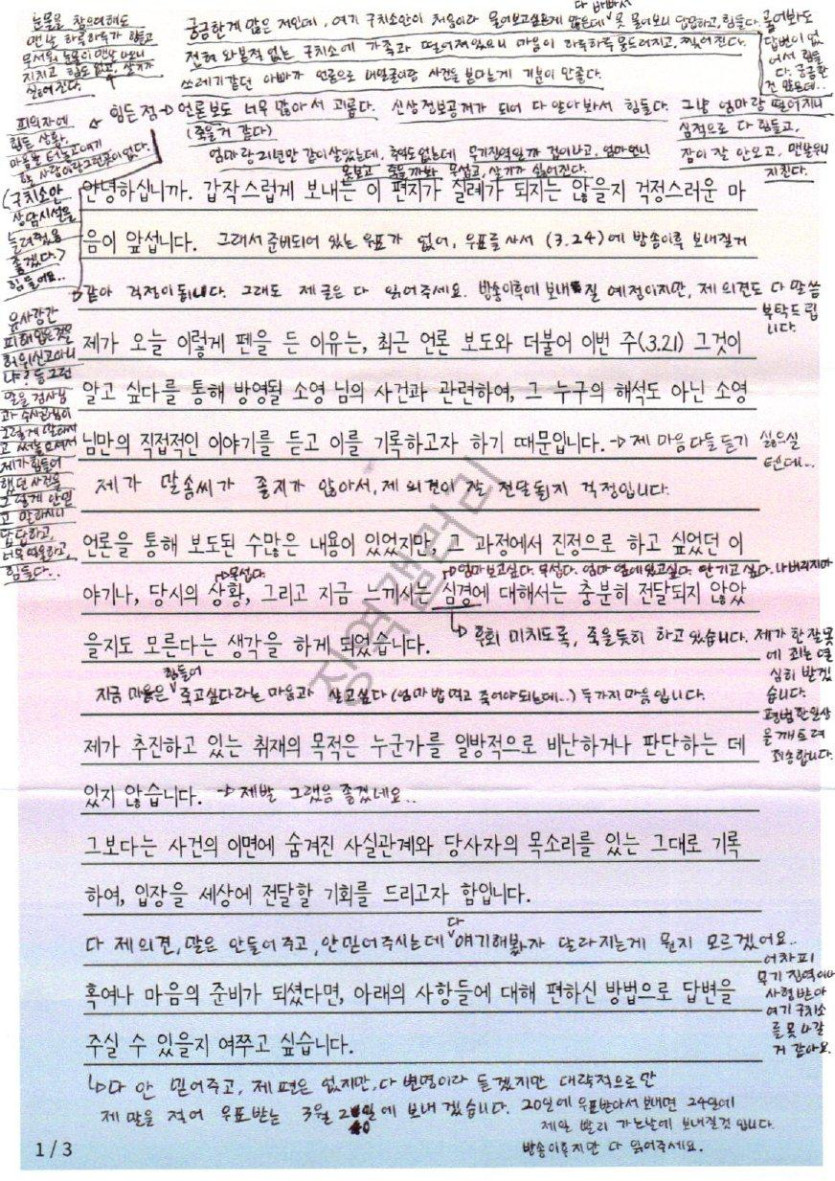 눈물을 참으려해도
맨날 하루하루가 힘들고
무서워 눈물이 맨날 나오니
지치고 힘도 없고, 살기가
싫어진다.
궁금한게 많은 저인데, 여기 구치소안이 처음이라 물어보고싶은게 많은데 다 바빠서 못 물어보니 답답하고, 힘들다. 물어봐도
답변이 없
어서 힘들
다. 궁금한
건 많은데..
전혀 와본적 없는 구치소에 가족과 떨어져있으니 마음이 하루하루 뭉드러지고, 찢어진다.
쓰레기같던 아빠가 언론으로 내얼굴이랑 사건을 봤다는게 기분이 안좋다.
피의자에
힘든 상황,
마음을 털어놓고 얘기
할 사람이랑 그런곳이 없다.
(구치소안
상담시설을
늘려줬음
좋겠다.)
힘들어요..
힘든 점→ 언론보도 너무 많아서 괴롭다. 신상전보공개가 되어 다 알아봐서 힘들다. 그냥 엄마랑 떨어지니
(죽을거 같다)
심적으로 다 힘들고,
잠이 잘 안오고, 맨날 우니
지친다.
엄마랑 21년만 같이살았는데, 추억도없는데 무기징역일까 겁이나고, 엄마언니
못보고 죽을까봐 무섭고, 살기가 싫어진다.
안녕하십니까. 갑작스럽게 보내는 이 편지가 실례가 되지는 않을지 걱정스러운 마
음이 앞섭니다. 그래서 준비되어 있는 우표가 없어, 우표를 사서 (3.24)에 방송이후 보내질거
같아 걱정이 됩니다. 그래도 제 글은 다 읽어주세요. 방송이후에 보내질 예정이지만, 제 의견도 다 말씀
부탁드립
니다.
유사강간
피해입은것은
허위신고아니
냐? 등 그런
말을 검사님
과 수사관님이
그렇게 말하시
고
제가 힘들어
했던 사건을
그렇게 안믿
고 말하시니
답답하고,
너무 억울하고,
힘들다..
제가 오늘 이렇게 펜을 든 이유는, 최근 언론 보도와 더불어 이번 주(3.21) 그것이
알고 싶다를 통해 방영될 소영 님의 사건과 관련하여, 그 누구의 해석도 아닌 소영
님만의 직접적인 이야기를 듣고 이를 기록하고자 하기 때문입니다. → 제 마음 다들 듣기 싫으실
텐데...
제가 말솜씨가 좋지가 않아서, 제 의견이 잘 전달될지 걱정입니다.
언론을 통해 보도된 수많은 내용이 있었지만, 그 과정에서 진정으로 하고 싶었던 이
무섭다.
엄마보고싶다. 무섭다. 엄마 옆에있고싶다. 안기고 싶다.
야기나, 당시의 상황, 그리고 지금 느끼시는 심경에 대해서는 충분히 전달되지 않았
을지도 모른다는 생각을 하게 되었습니다.
후회 미치도록, 죽을듯이 하고 있습니다. 제가 한 잘못
에 죄는 열
심히 받겠
습니다.
평범한 일상
을 깨트려
죄송합니다.
지금 마음은 힘들어 죽고싶다라는 마음과 살고싶다 (엄마 밥먹고 죽어야되는데...) 두가지 마음 입니다.
제가 추진하고 있는 취재의 목적은 누군가를 일방적으로 비난하거나 판단하는 데
있지 않습니다. → 제발 그랬음 좋겠네요..
그보다는 사건의 이면에 숨겨진 사실관계와 당사자의 목소리를 있는 그대로 기록
하여, 입장을 세상에 전달할 기회를 드리고자 함입니다.
다 제의견, 말은 안들어주고, 안믿어주시는데 다 얘기해봤자 달라지는게 뭔지 모르겠어요..
어차피
무기 징역이나
사형받아
여기 구치소
를 못 나갈
거 같아요.
혹여나 마음의 준비가 되셨다면, 아래의 사항들에 대해 편하신 방법으로 답변을
주실 수 있을지 여쭈고 싶습니다.
다 안 믿어주고, 제 편은 없지만, 다 변명이라 듣겠지만 대략적으로만
제 말을 적어 우표받는 3월 20일에 보내겠습니다. 20일에 우표받아서 보내면 24일에
제일 빨리 가는날에 보내질것 입니다.
방송이후지만 다 읽어주세요.
징역갤러리
1 / 3